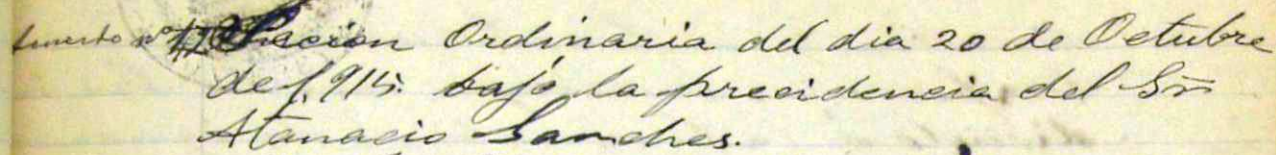 Secion Ordinaria del dia 20 de Octubre
de 1.915. bajo la precidencia del Sr
Atanacio Sanches.